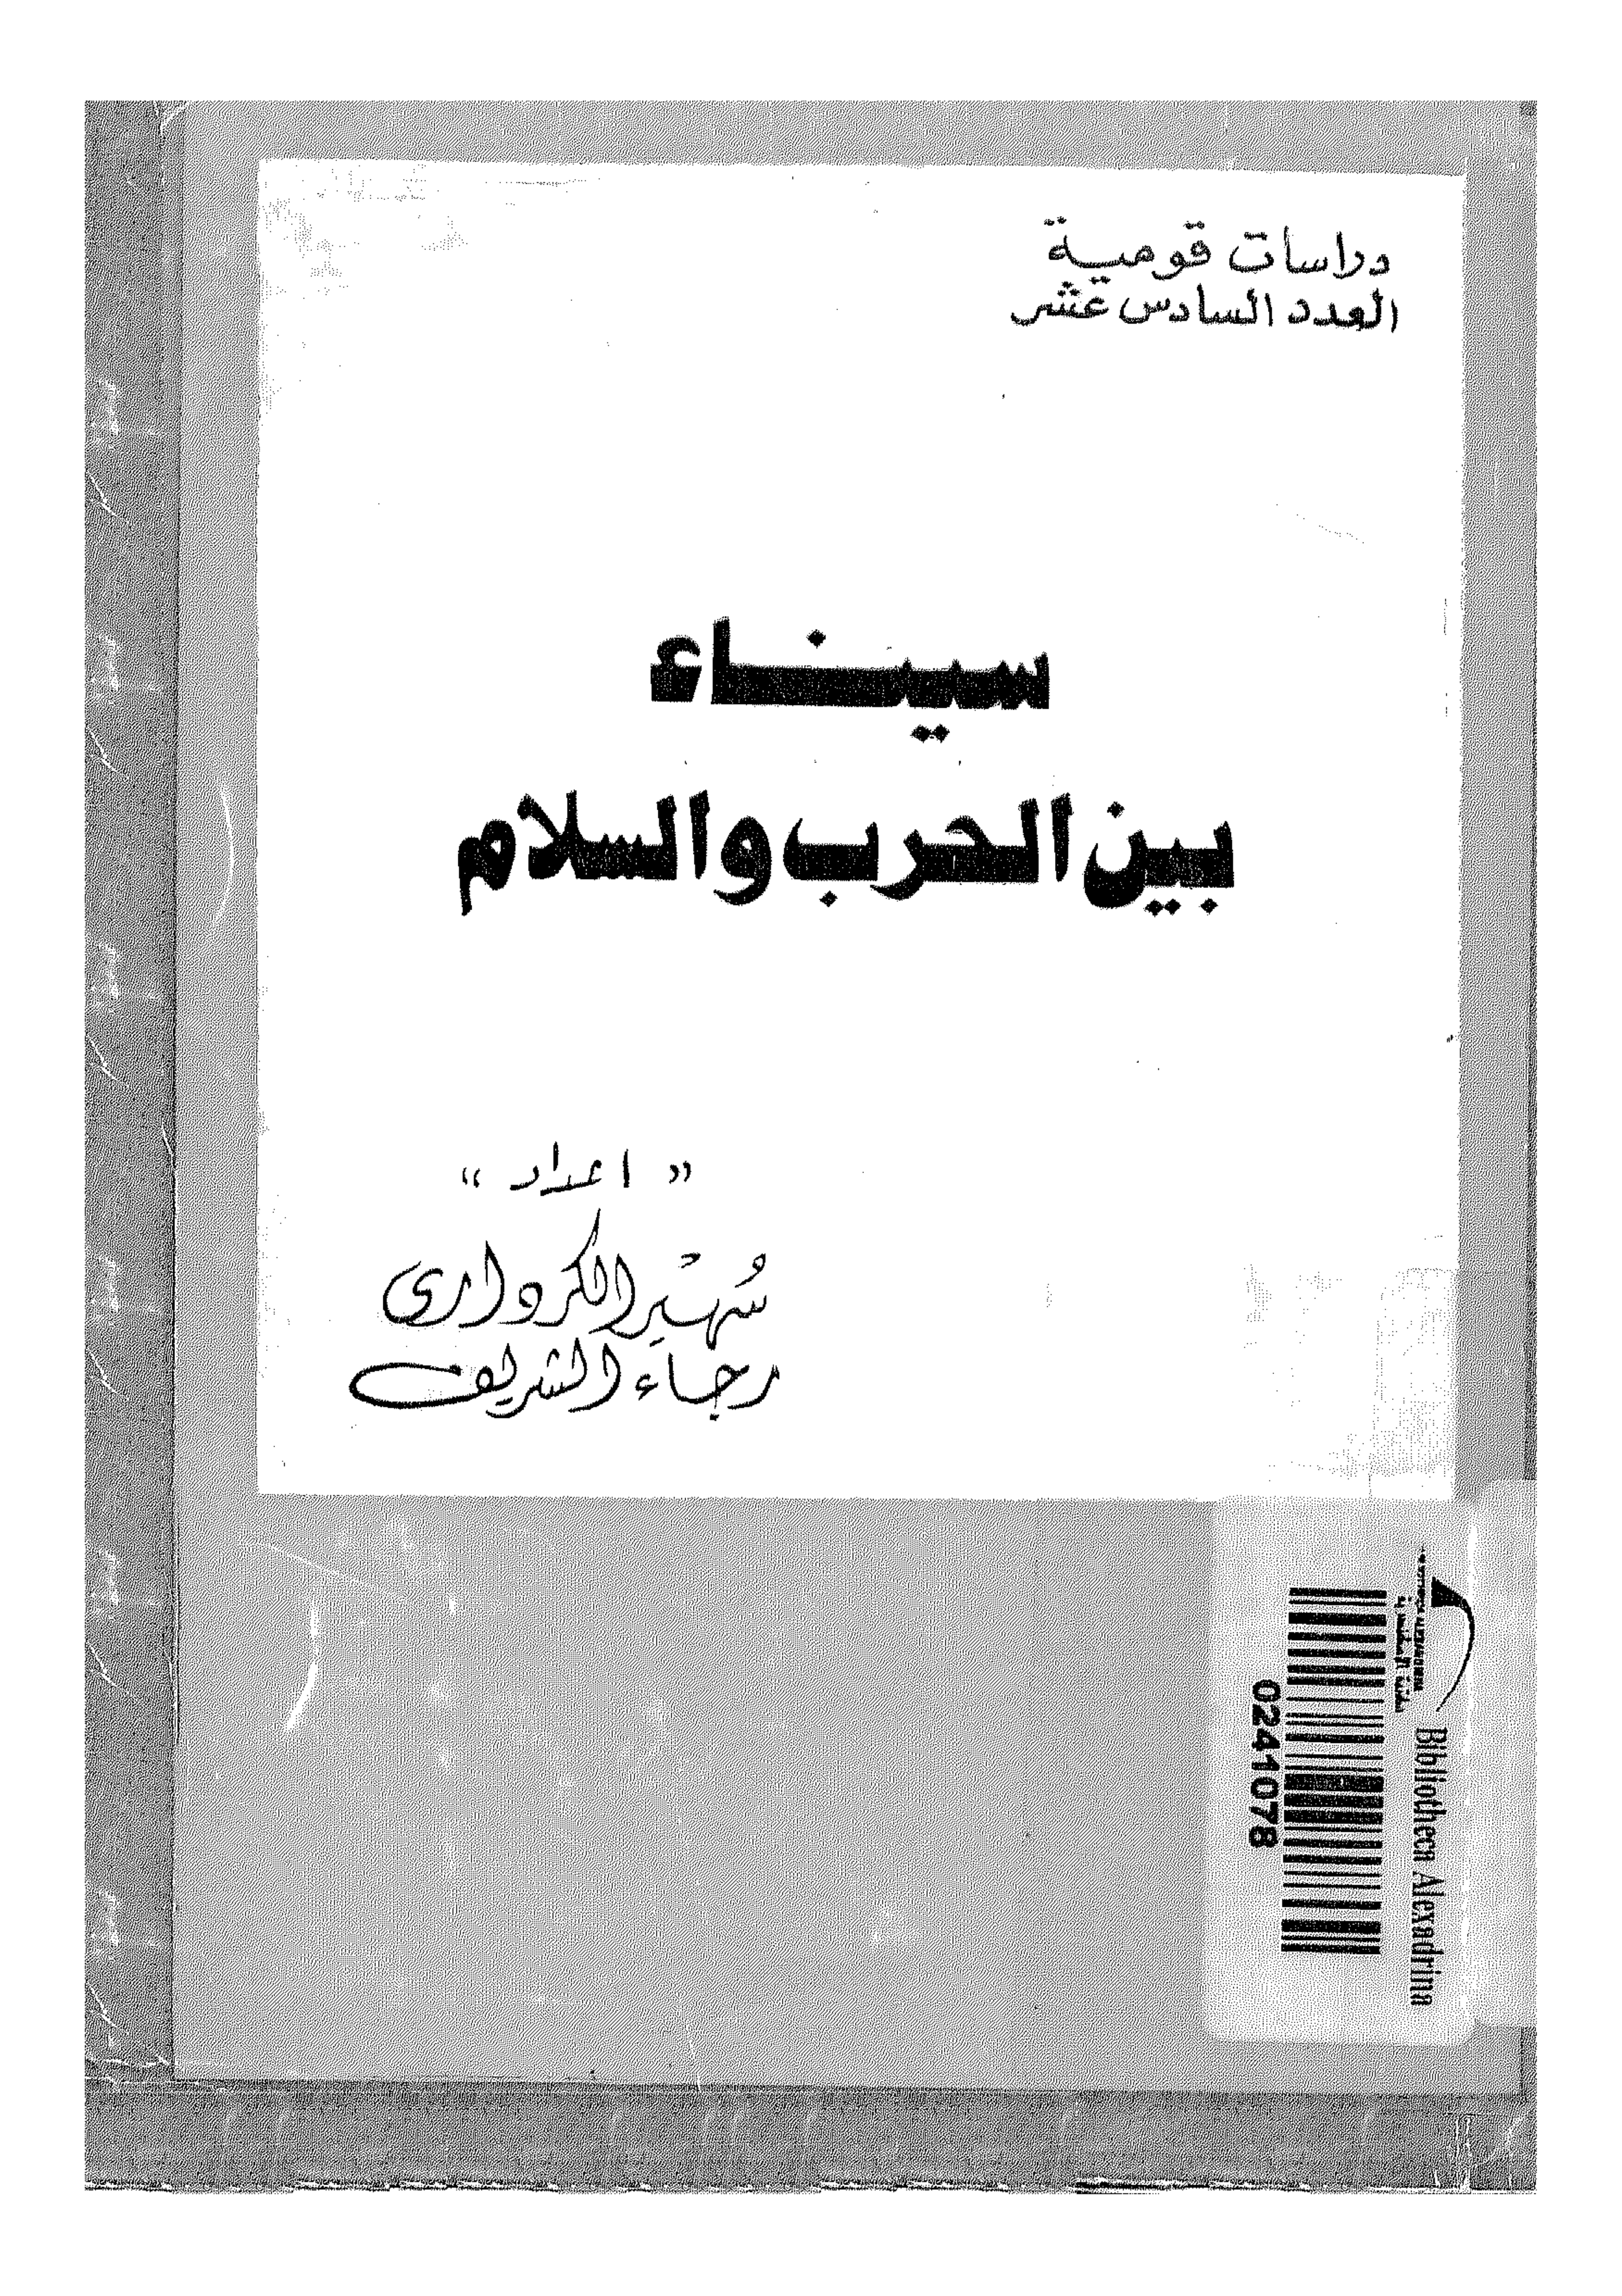 دراسات قومية
العدد السادس عشر
سيناء
بين الحرب والسلام
« اعداد »
سُهير الكردارى
رجاء الشريف
Bibliotheca Alexandrina
0241078